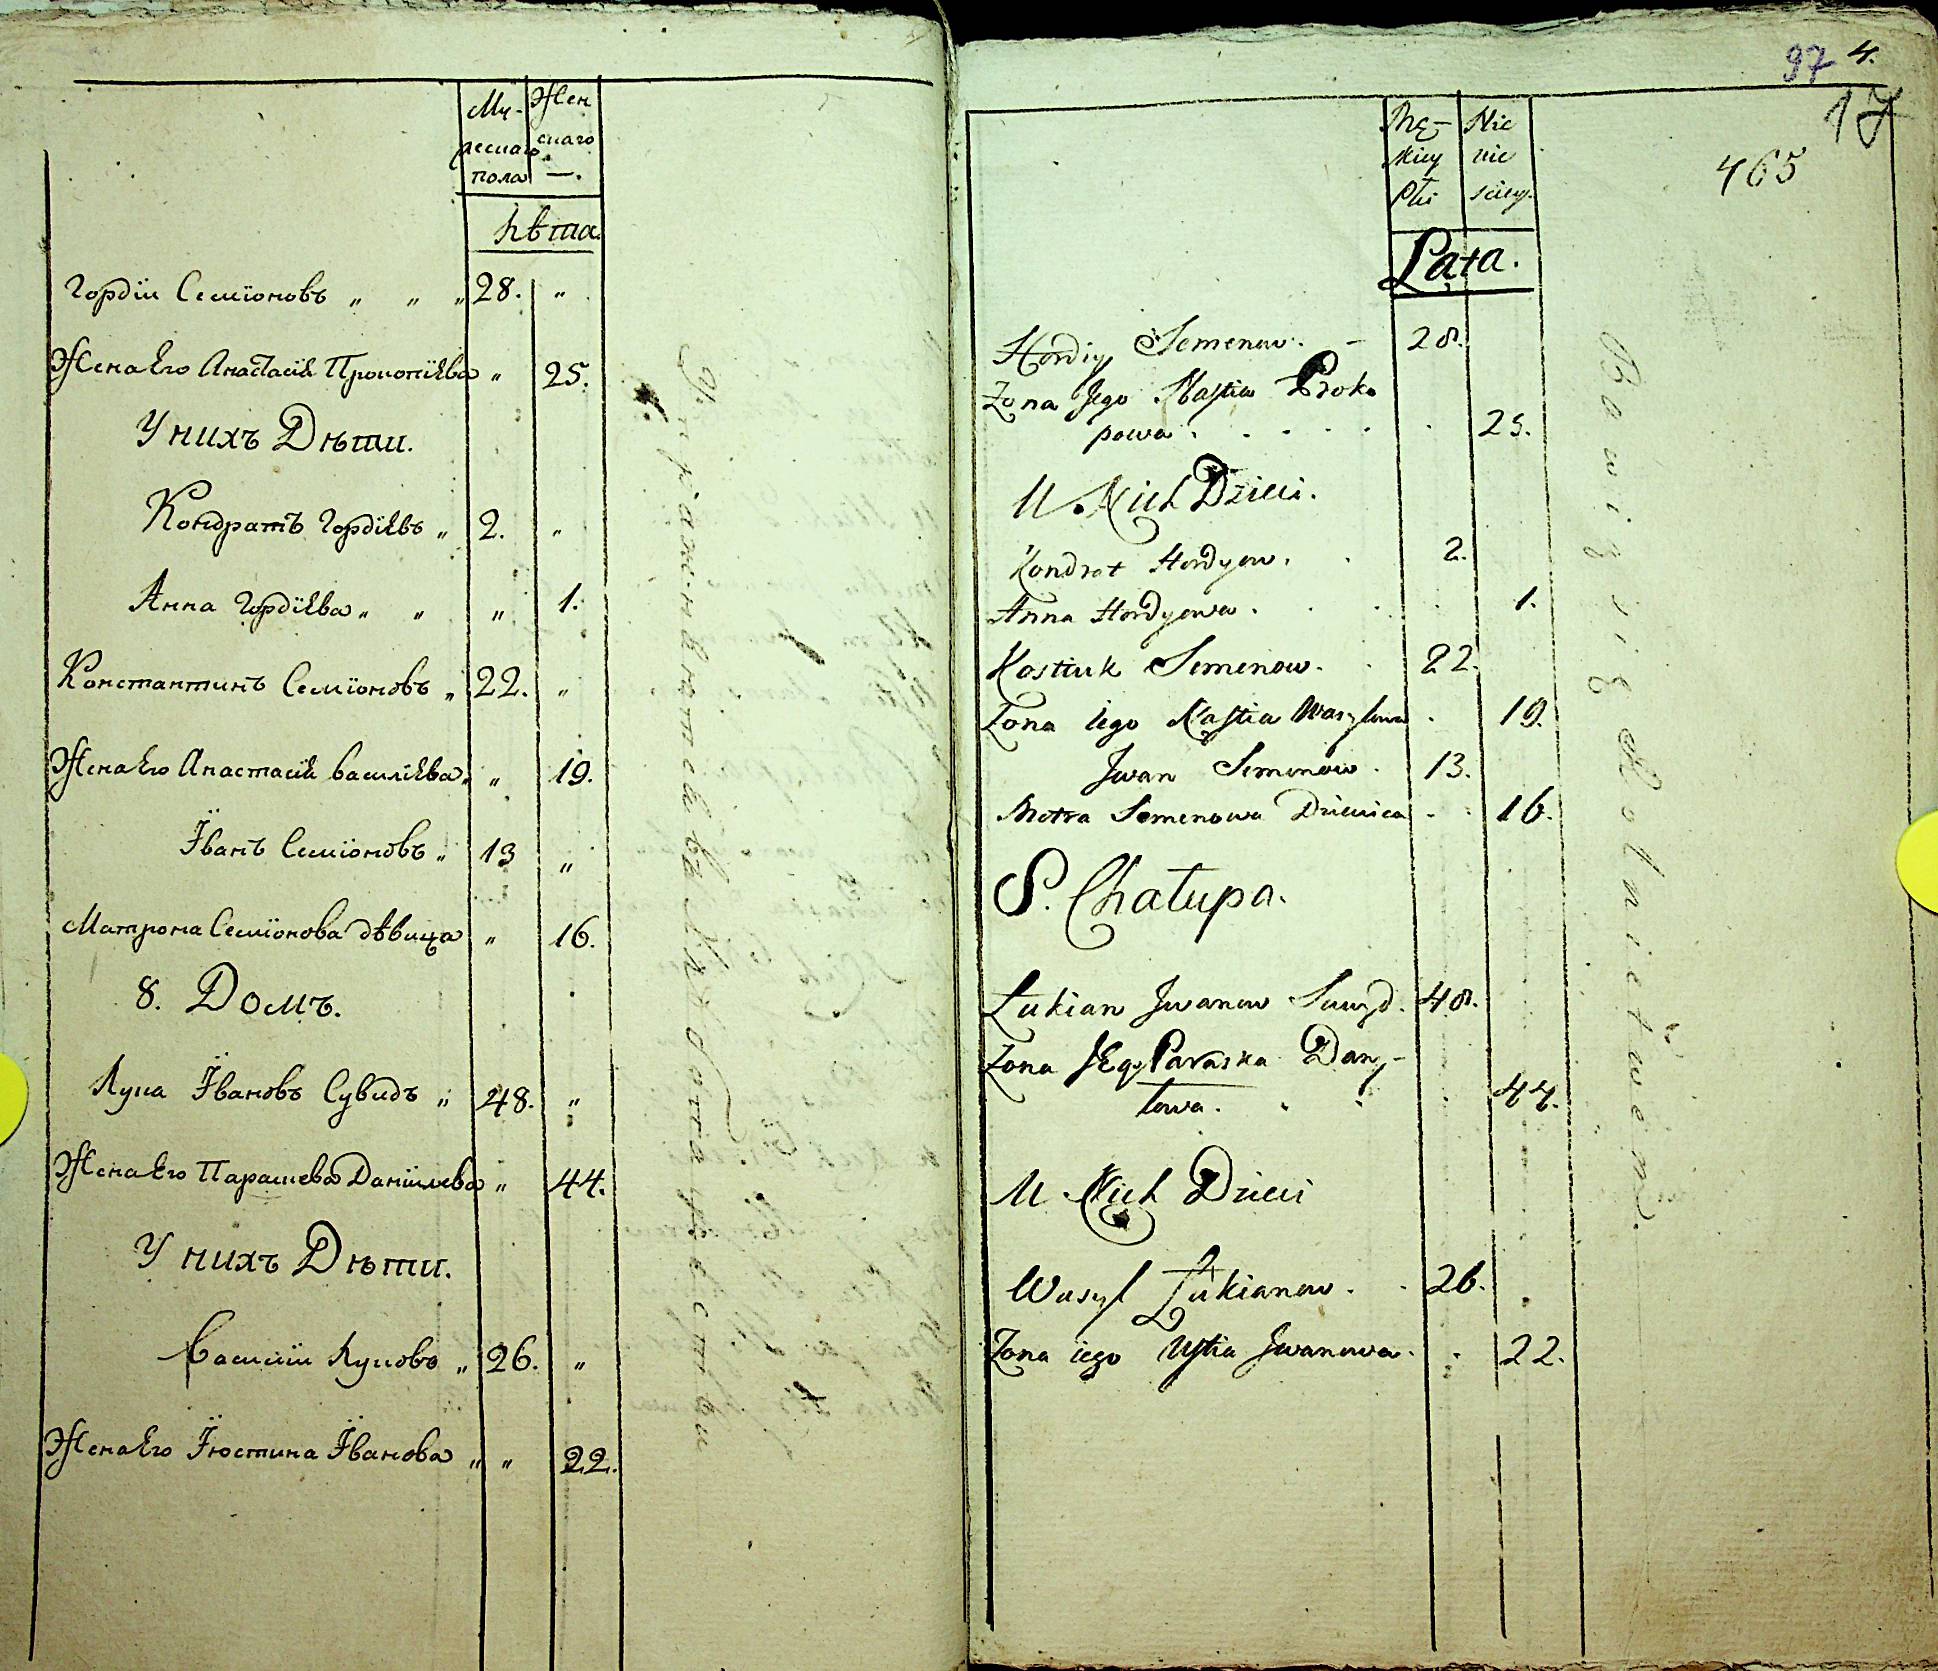 Му-
жескаго
пола
Жен
скаго
—.
Лѣта.
Гордіи Семіоновъ „ „ „ 28. „
Жена Его Анастасія Прокопіева „ 25.
У нихъ Дѣти.
Кондратъ Гордіевъ „ 2. „
Анна Гордіева „ „ „ 1.
Константинъ Семіоновъ „ 22. „
Жена Его Анастасія Василіева „ „ 19.
Іванъ Семіоновъ „ 13 „
Матрона Семіонова дѣвица „ 16.
8. Домъ.
Лука Івановъ Сувидъ „ 48. „
Жена Его Парашева Даніилева „ 44.
У нихъ Дѣти.
Василіи Луковъ „ 26. „
Жена Его Іюстина Іванова „ „ 22.
Упражняются в Хлѣбопашествѣ
97 4.
17
465
Mę-
skiey
Płci
Nie
wie
sciey.
Lata.
Hordiy Semenow. - 28.
Zona Jego Nastia Proko
powa . . . . . 25.
U Nich Dzieci.
Kondrat Hordyow. . 2.
Anna Hordyowa . . . . 1.
Kostiuk Semenow. . 22.
Zona iego Nastia Wasylowa . 19.
Jwan Semenow . 13.
Motra Semenowa Dziewica . . 16.
8. Chałupa.
Łukian Jwanow Suwyd. 48.
Zona JEgo Paraska Dany-
łowa . . . . 44.
U Nich Dzieci
Wasyl Łukianow . . 26.
Zona iego Ustia Jwanowa . . 22.
Bawią się Rolnictwem.